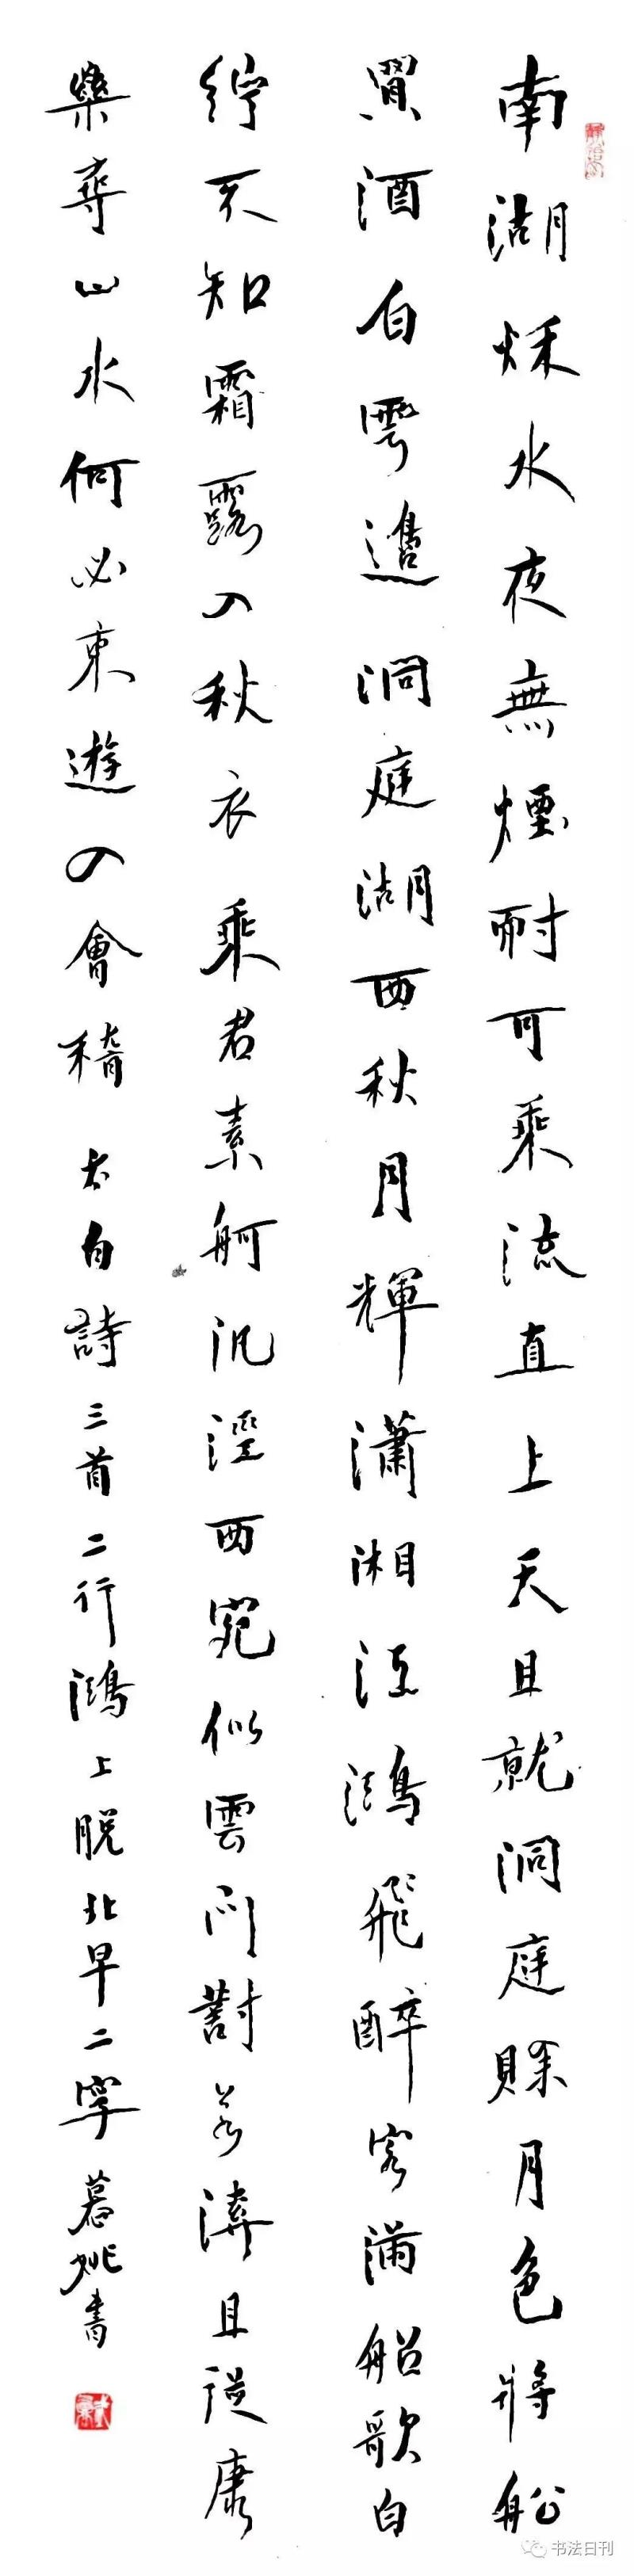 南湖秌水夜無煙耐可乘流直上天且就洞庭賖月色將船
買酒白雲邊洞庭湖西秋月輝瀟湘江鴻飛醉客滿船歌白
紵不知霜露入秋衣乘君素舸汎涇西宛似雲門對若溪且從康
樂尋山水何必東遊入會稽 太白詩三首二行鴻上脫北早二字 慕姚書
书法日刊